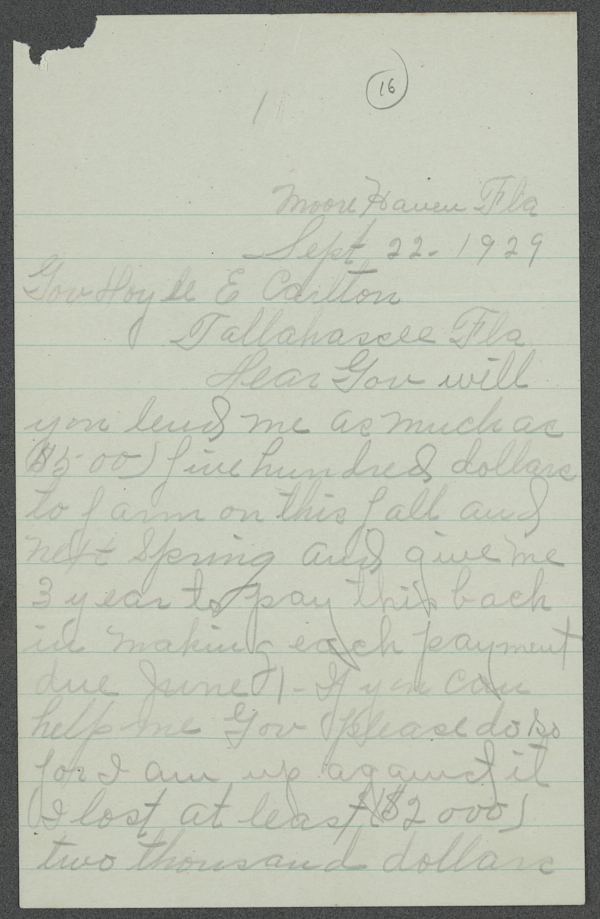 16
1
Moore Haven Fla
Sept 22 - 1929
Gov Hoyle E Carlton
Tallahassee Fla
Dear Gov will
you lend me as much as
($500) five hundred dollars
to farm on this fall and
next Spring and give me
3 year to pay this back
in making each payment
due June 1 - If you can
help me Gov please do so
for I am up against it
I lost at least ($2000)
two thousand dollars